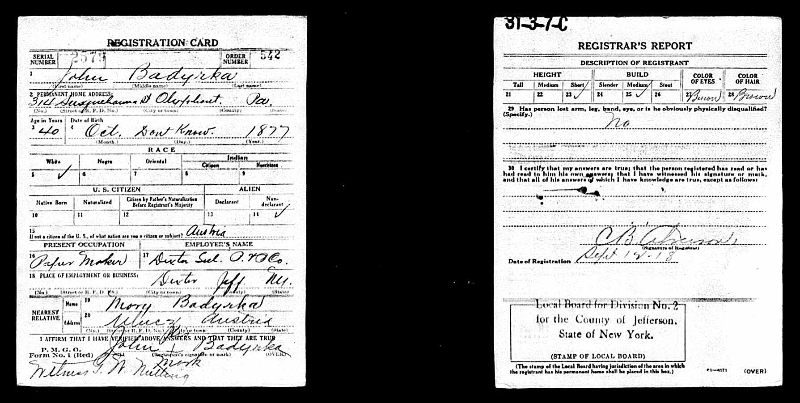 REGISTRATION CARD
SERIAL NUMBER 2579 ORDER NUMBER 542
1 John Badyrka
(First name) (Middle name) (Last name)
2 PERMANENT HOME ADDRESS:
314 Susquehanna St Olyphant Pa.
(No.) (Street or R. F. D. No.) (City or town) (County) (State)
Age in Years Date of Birth
3 40 4 Oct. Dont Know 1877
(Month.) (Day.) (Year.)
RACE
White Negro Oriental Indian
Citizen Noncitizen
5 ✓ 6 7 8 9
U. S. CITIZEN ALIEN
Native Born Naturalized Citizen by Father's Naturalization Before Registrant's Majority Declarant Non-declarant
10 11 12 13 14 ✓
15 If not a citizen of the U. S., of what nation are you a citizen or subject? Austria
PRESENT OCCUPATION EMPLOYER'S NAME
16 Paper Maker 17 Co.
18 PLACE OF EMPLOYMENT OR BUSINESS:
Jeff NY.
(No.) (Street or R. F. D. No.) (City or town) (County) (State)
NEAREST RELATIVE Name 19 Mary Badyrka
Address 20 Austria
(No.) (Street or R. F. D. No.) (City or town) (County) (State)
I AFFIRM THAT I HAVE VERIFIED ABOVE ANSWERS AND THAT THEY ARE TRUE
P. M. G. O.
Form No. 1 (Red) John X Badyrka
(Registrant's signature or mark) (OVER)
Mark
Witness
31-3-7-C
REGISTRAR'S REPORT
DESCRIPTION OF REGISTRANT
HEIGHT BUILD COLOR OF EYES COLOR OF HAIR
Tall Medium Short Slender Medium Stout
21 22 23 ✓ 24 25 ✓ 26 27 Brown 28 Brown
29 Has person lost arm, leg, hand, eye, or is he obviously physically disqualified?
(Specify.) No
30 I certify that my answers are true; that the person registered has read or has
had read to him his own answers; that I have witnessed his signature or mark,
and that all of his answers of which I have knowledge are true, except as follows:
C.B.
(Signature of Registrar)
Date of Registration Sept 12-18
Local Board for Division No. 2
for the County of Jefferson,
State of New York.
(STAMP OF LOCAL BOARD)
(The stamp of the Local Board having jurisdiction of the area in which
the registrant has his permanent home shall be placed in this box.)
(OVER)